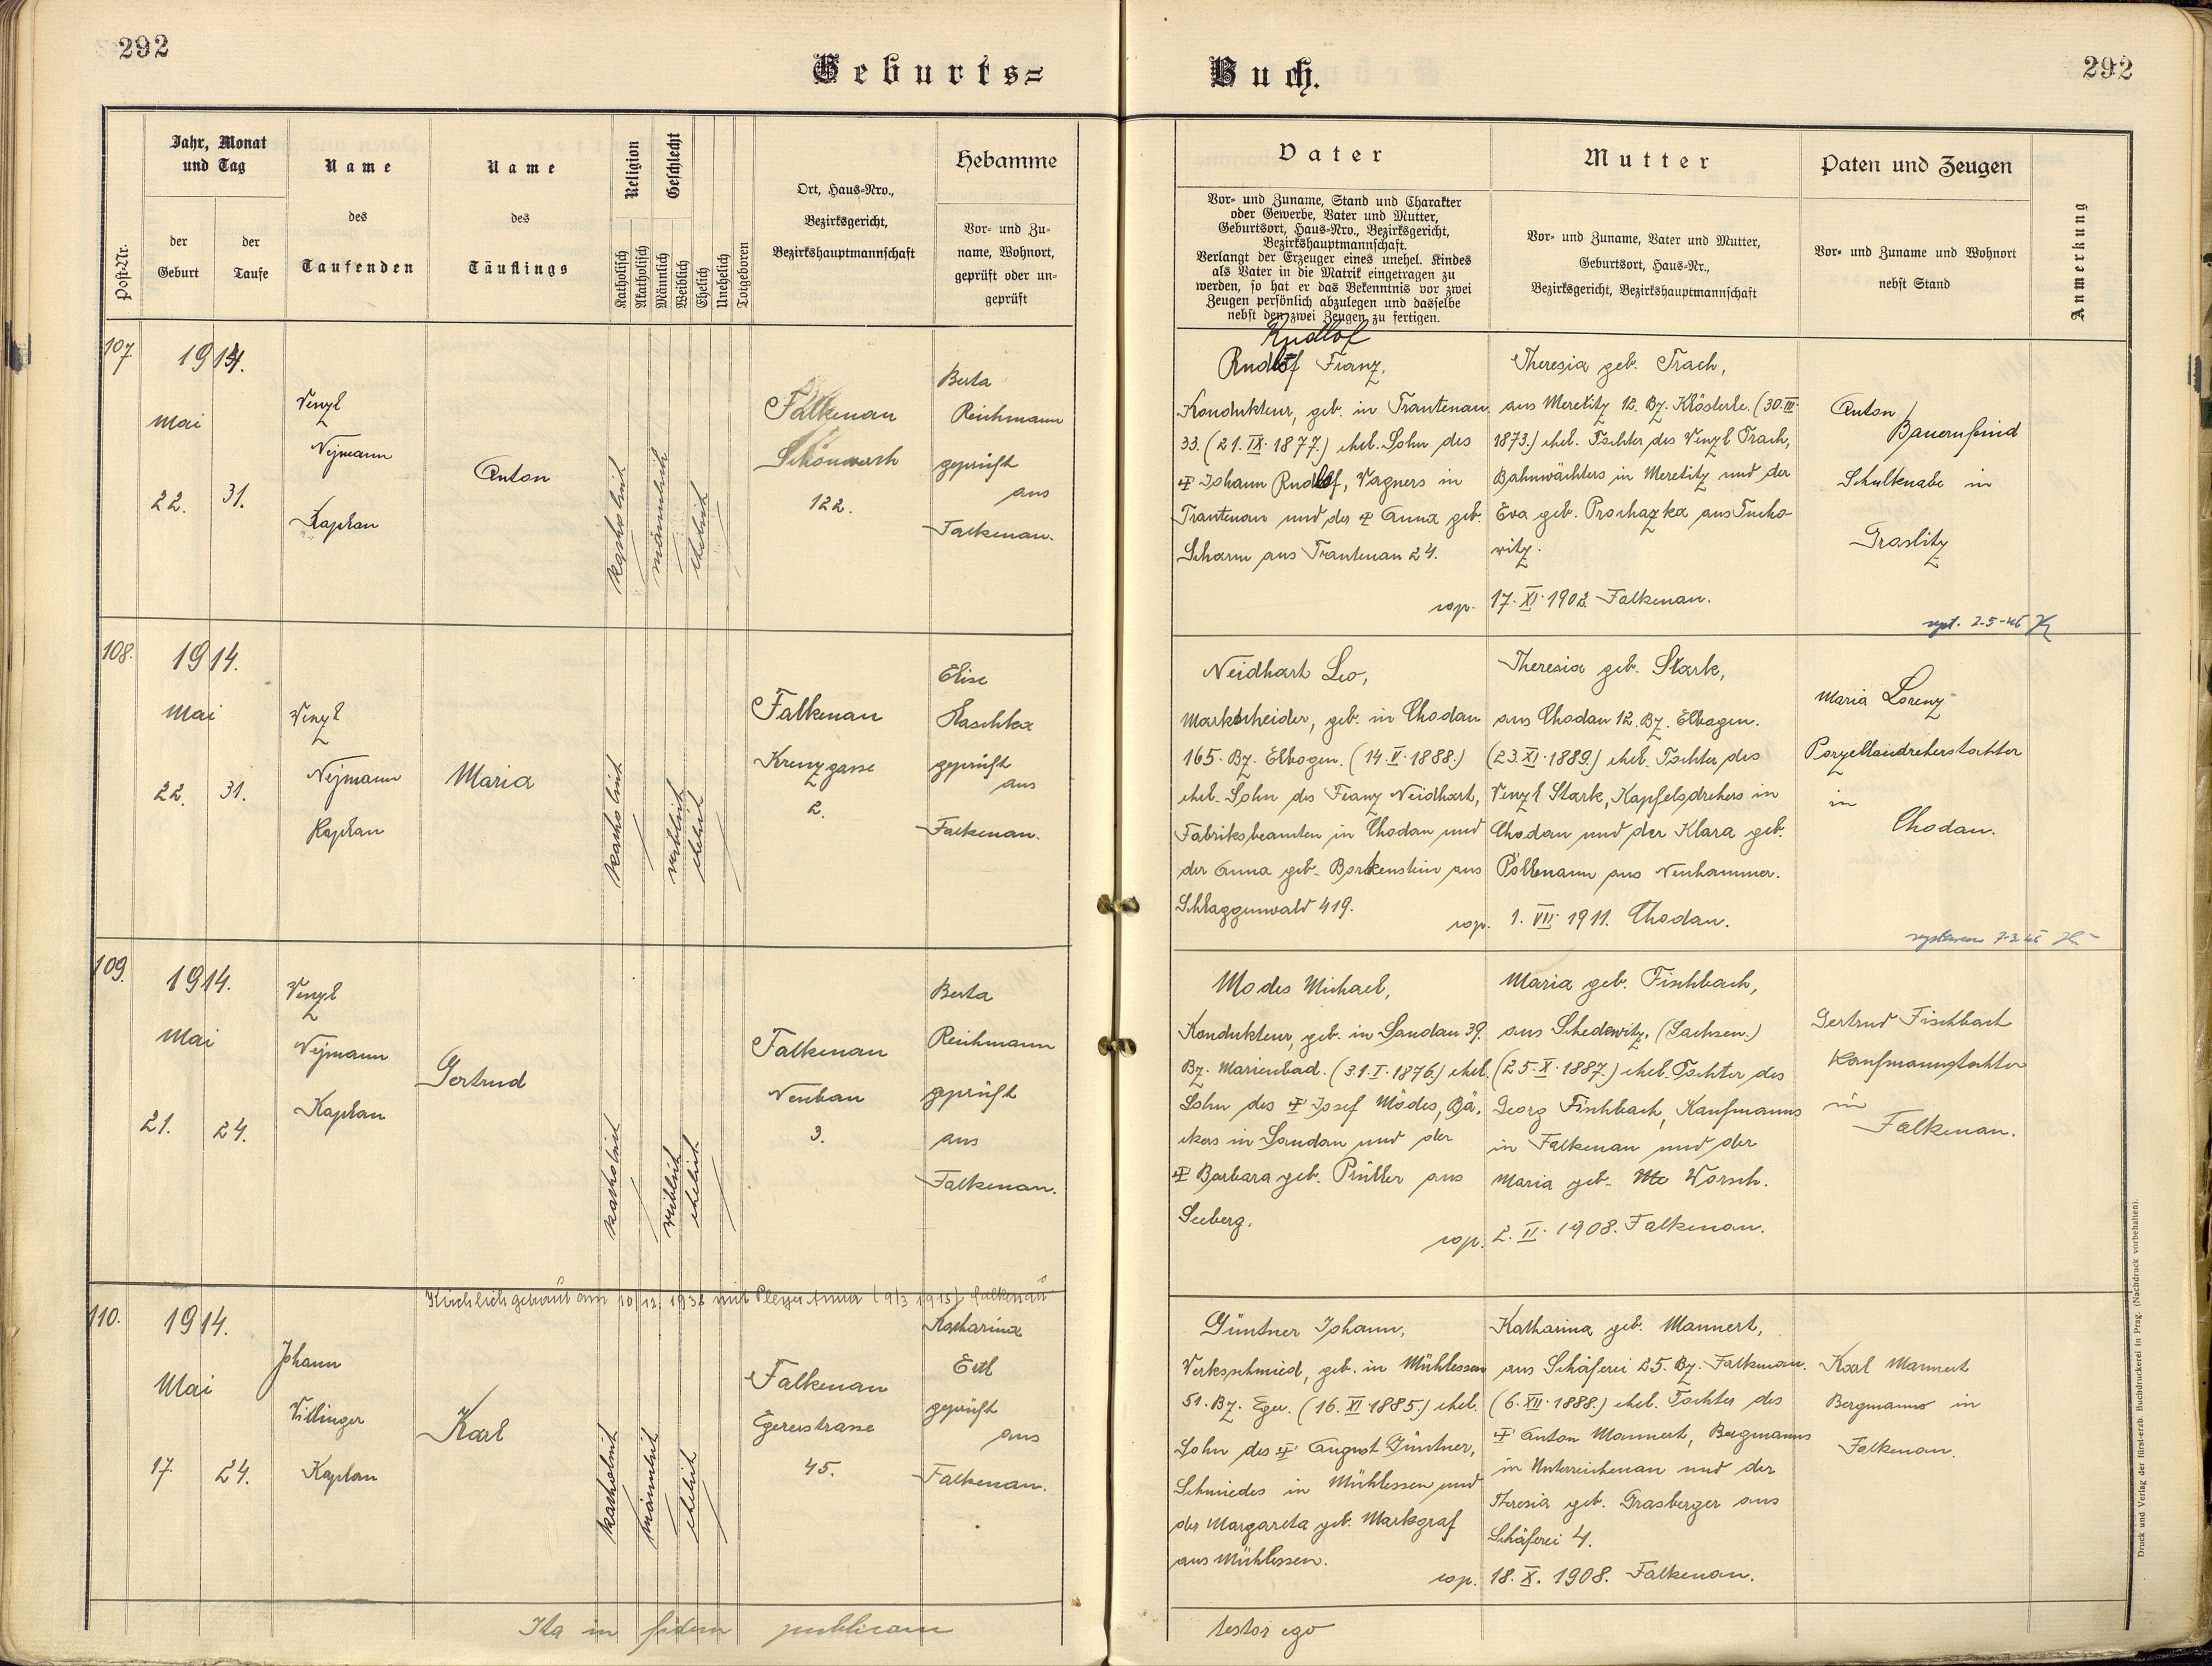 292
Geburts=
Buch.
292
Post-Nr.
Jahr, Monat
und Tag
der
Geburt
der
Taufe
Name
des
Taufenden
Name
des
Täuflings
Religion
Geschlecht
Katholisch
Akatholisch
Männlich
Weiblich
Ehelich
Unehelich
Totgeboren
Ort, Haus-Nro.,
Bezirksgericht,
Bezirkshauptmannschaft
Hebamme
Vor- und Zu-
name, Wohnort,
geprüft oder un-
geprüft
Vater
Vor- und Zuname, Stand und Charakter
oder Gewerbe, Vater und Mutter,
Geburtsort, Haus-Nro., Bezirksgericht,
Bezirkshauptmannschaft.
Verlangt der Erzeuger eines unehel. Kindes
als Vater in die Matrik eingetragen zu
werden, so hat er das Bekenntnis vor zwei
Zeugen persönlich abzulegen und dasselbe
nebst den zwei Zeugen zu fertigen.
Mutter
Vor- und Zuname, Vater und Mutter,
Geburtsort, Haus-Nr.,
Bezirksgericht, Bezirkshauptmannschaft
Paten und Zeugen
Vor- und Zuname und Wohnort
nebst Stand
Anmerkung
107.
1914.
Mai
22.
31.
Wenzl
Nejmann
Kaplan
Anton
katholisch
männlich
ehelich
Falkenau
Schönwerth
122.
Berta
Reichmann
geprüft
aus
Falkenau.
Rudlof
Rudlof Franz,
Kondukteur, geb. in Trautenau
33. (21. IX. 1877.) ehel. Sohn des
Johann Rudlof, Wagners in
Trautenau und der Anna geb.
Scharm aus Trautenau 24.
Theresia geb. Trach,
aus Meretitz 12. Bz. Klösterle. (30. III.
1873.) ehel. Tochter des Wenzl Trach,
Bahnwächters in Meretitz und der
Eva geb. Prochazka aus Tucho-
witz.
cop. 17. XI. 1902. Falkenau.
Anton
Bauernfeind
Schulknabe in
Graslitz
2-5-46
108.
1914.
Mai
22.
31.
Wenzl
Nejmann
Kaplan
Maria
katholisch
weiblich
ehelich
Falkenau
Kreuzgasse
2.
Elise
Haschka
geprüft
aus
Falkenau.
Neidhart Leo,
Markscheider, geb. in Chodau
165. Bz. Elbogen. (14. V. 1888.)
ehel. Sohn des Franz Neidhart,
Fabriksbeamten in Chodau und
der Anna geb. Borkenstein aus
Schlaggenwald 419.
Theresia geb. Stark,
aus Chodau 12. Bz. Elbogen.
(23. XI. 1889.) ehel. Tochter des
Wenzl Stark, Kapfelsdrehers in
Chodau und der Klara geb.
Pöllmann aus Neuhammer.
cop. 1. VII. 1911. Chodau.
Maria Lorenz
Porzellandreherstochter
in
Chodau.
109.
1914.
Mai
21.
24.
Wenzl
Nejmann
Kaplan
Gertrud
katholisch
weiblich
ehelich
Falkenau
Neubau
3.
Berta
Reichmann
geprüft
aus
Falkenau.
Modes Michael,
Kondukteur, geb. in Sandau 39.
Bz. Marienbad. (31. I. 1876.) ehel.
Sohn des Josef Modes, Bä-
ckers in Sandau und der
Barbara geb. Prüller aus
Seeberg.
Maria geb. Fischbach,
aus Schedewitz. (Sachsen.)
(25. X. 1887.) ehel. Tochter des
Georg Fischbach, Kaufmanns
in Falkenau und der
Maria geb. Worsch.
cop. 2. II. 1908. Falkenau.
Gertrud Fischbach
Kaufmannstochter
in
Falkenau.
Kirchlich getraut am 10/12. 1938 mit Pleyer Anna (9/3 1915) Falkenau
110.
1914.
Mai
17.
24.
Johann
Villinger
Kaplan
Karl
katholisch
männlich
ehelich
Falkenau
Egererstrasse
45.
Katharina
Ertl
geprüft
aus
Falkenau.
Güntner Johann,
Werksschmied, geb. in Mühlessen
51. Bz. Eger. (16. XI. 1885.) ehel.
Sohn des August Güntner,
Schmiedes in Mühlessen und
der Margareta geb. Markgraf
aus Mühlessen.
Katharina geb. Mannert,
aus Schäferei 25. Bz. Falkenau.
(6. XII. 1888.) ehel. Tochter des
Anton Mannert, Bergmanns
in Unterreichenau und der
Theresia geb. Grasberger aus
Schäferei 4.
cop. 18. X. 1908. Falkenau.
Karl Mannert
Bergmanns in
Falkenau.
Ita in fidem publicam
testor ego
Druck und Verlag der fürst-erzb. Buchdruckerei in Prag. (Nachdruck vorbehalten).